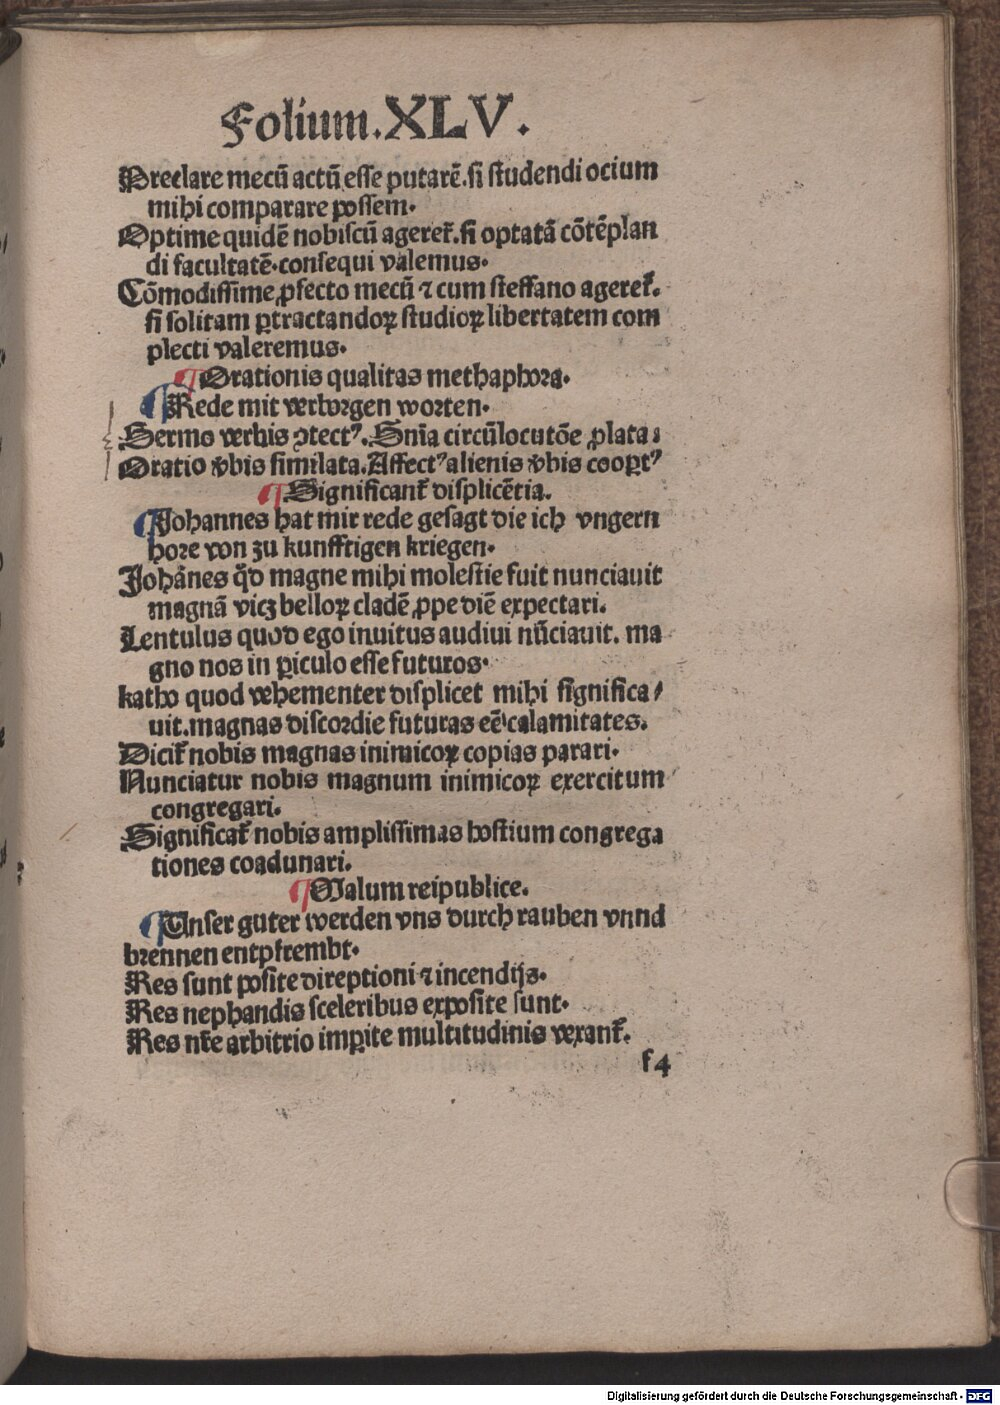 Folium.XLV.
Preclare mecū actū esse putarē.si studendi ocium
mihi comparare possem.
Optime quidē nobiscū ageret̄.si optatā cōtēplan
di facultatē.consequi valemus.
Cōmodissime ꝓfecto mecū ⁊ cum steffano ageret̄.
si solitam ꝑtractandoꝝ studioꝝ libertatem com
plecti valeremus.
¶Orationis qualitas methaphora.
¶Rede mit verborgen worten.
Sermo verbis ꝯtectꝰ.Sn̄ia circūlocutōe ꝓlata:
Oratio v̄bis similata.Affectꝰ alienis v̄bis cooꝑtꝰ
¶Significant̄ displicētia.
¶Johannes hat mir rede gesagt die ich vngern
hore von zu kunfftigen kriegen.
Johānes qd̄ magne mihi molestie fuit nunciauit
magnā vicꝫ belloꝝ cladē ꝓpe diē expectari.
Lentulus quod ego inuitus audiui nūciauit. ma
gno nos in ꝑiculo esse futuros.
katho quod vehementer displicet mihi significa/
uit.magnas discordie futuras eē calamitates.
Dicit̄ nobis magnas inimicoꝝ copias parari.
Nunciatur nobis magnum inimicoꝝ exercitum
congregari.
Significat̄ nobis amplissimas hostium congrega
tiones coadunari.
¶Malum reipublice.
¶Unser guter werden vns durch rauben vnnd
brennen entpfrembt.
Res sunt posite direptioni ⁊ incendijs.
Res nephandis sceleribus exposite sunt.
Res nr̄e arbitrio imꝑite multitudinis vexant̄.
f4
Digitalisierung gefördert durch die Deutsche Forschungsgemeinschaft - DFG